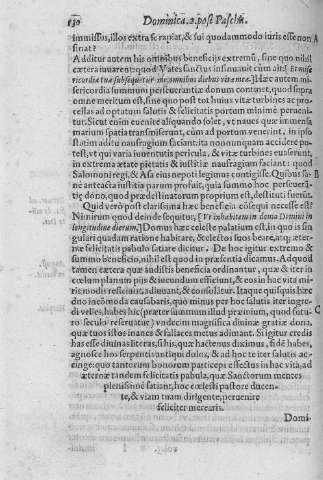 130 Dominica.2.post Pascha.
immissus, illos extra se rapiat, & sui quodammodo iuris esse non
sinat?
Additur autem his omnibus beneficijs extremũ, sine quo nihil
cætera inuarent; quod Vates sanctus insinuauit cùm ait: [Et mise
ricordia tua subsequetur me omnibus diebus vitæ meæ.] Hæc autem mi-
sericordia summum perseuerantiæ donum continet, quod supra
omne meritum est, sine quo post tot huius vitæ turbines ac pro-
cellas ad optatum salutis & felicitatis portum minimè peruenί-
tur. Sicut enim euenire aliquando solet, vt naues quæ immensa
marium spatia transmiserunt, cùm ad portum venerint, in ipsa
statim aditu naufragium faciant: ita nonnunquam accidere po-
test, vt qui varia iuuentutis pericula, & vitæ turbines euaserunt,
in extrema ætate pietatis & iustitiæ naufragium faciant: quod
Salomoni regi, & Asa eius nepoti legimus contigisse. Quibus sa- B
nè anteacta iustitia parum profuit, quia summo hoc perseuerã-
tiæ dono, quod prædestinatorum proprium est, destituti fuerũt.
Quid verò post clarissima hæc beneficia cõsequi necesse est?
Nimirum quod deinde sequitur, [Vt inhabitem in domo Domini in
longitudine dierum.] Domus hæc cæleste palatium est, in quo is sin
gulari quadam ratione habitare, & electos suos beare, atq; æter-
næ felicitatis pabulo satiare dicitur. De hoc igitur extremo be-
neficio, nihil à nobis est, quod in præsentia dicamus. Ad quod
tamen cætera quæ audistis beneficia ordinantur, quæ & iter in
cœlum planum pijs & iucundum efficiunt, & eos in hac vita mi-
ris modis reficiunt, adiuuant, & consolãtur. Itaque quisquis hæc
duo incõmoda causabaris, quò minus per hoc salutis iter ingre-
di velles, habes hîc (præter summum illud præmium, quod futu- C
ro seculo reseruatur) vndecim magnifica diuinæ gratiæ dona,
quæ tuos istos inanes & fallaces metus adimant. Si igitur credis
has esse diuinas literas, si his, quæ hactenus diximus, fidē habes,
agnosce hos serpentis antiqui dolos, & ad hoc te iter salutis ac-
cinge: quo tantorum bonorum particeps effectus in hac vita, ad
æternæ tandem felicitatis pabula, quæ Sanctorum mentes
plenissimè satiant, hoc cœlesti pastore ducen-
te, & viam tuam dirigente, peruenire
feliciter merearis.
Domi-